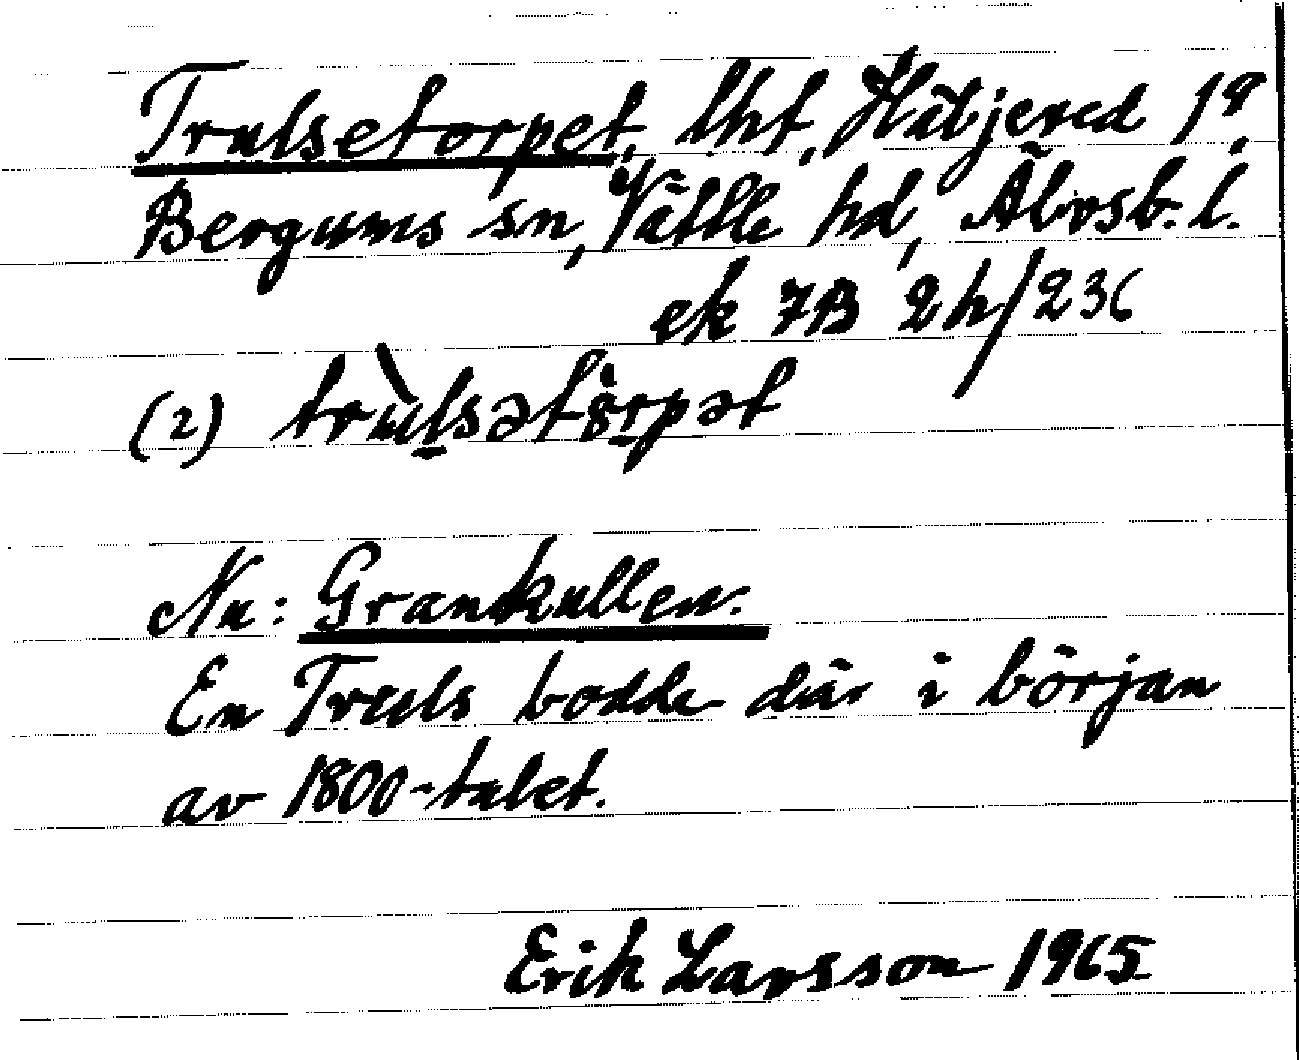 Trulsetorpet, lht, Hätjered 1⁹,
Bergums sn, Vättle hd, Älvsb. l.
ek 7B 2h/236
(2) trùlsətörpət
Nu: Grankullen.
En Truls bodde där i början
av 1800-talet.
Erik Larsson 1965